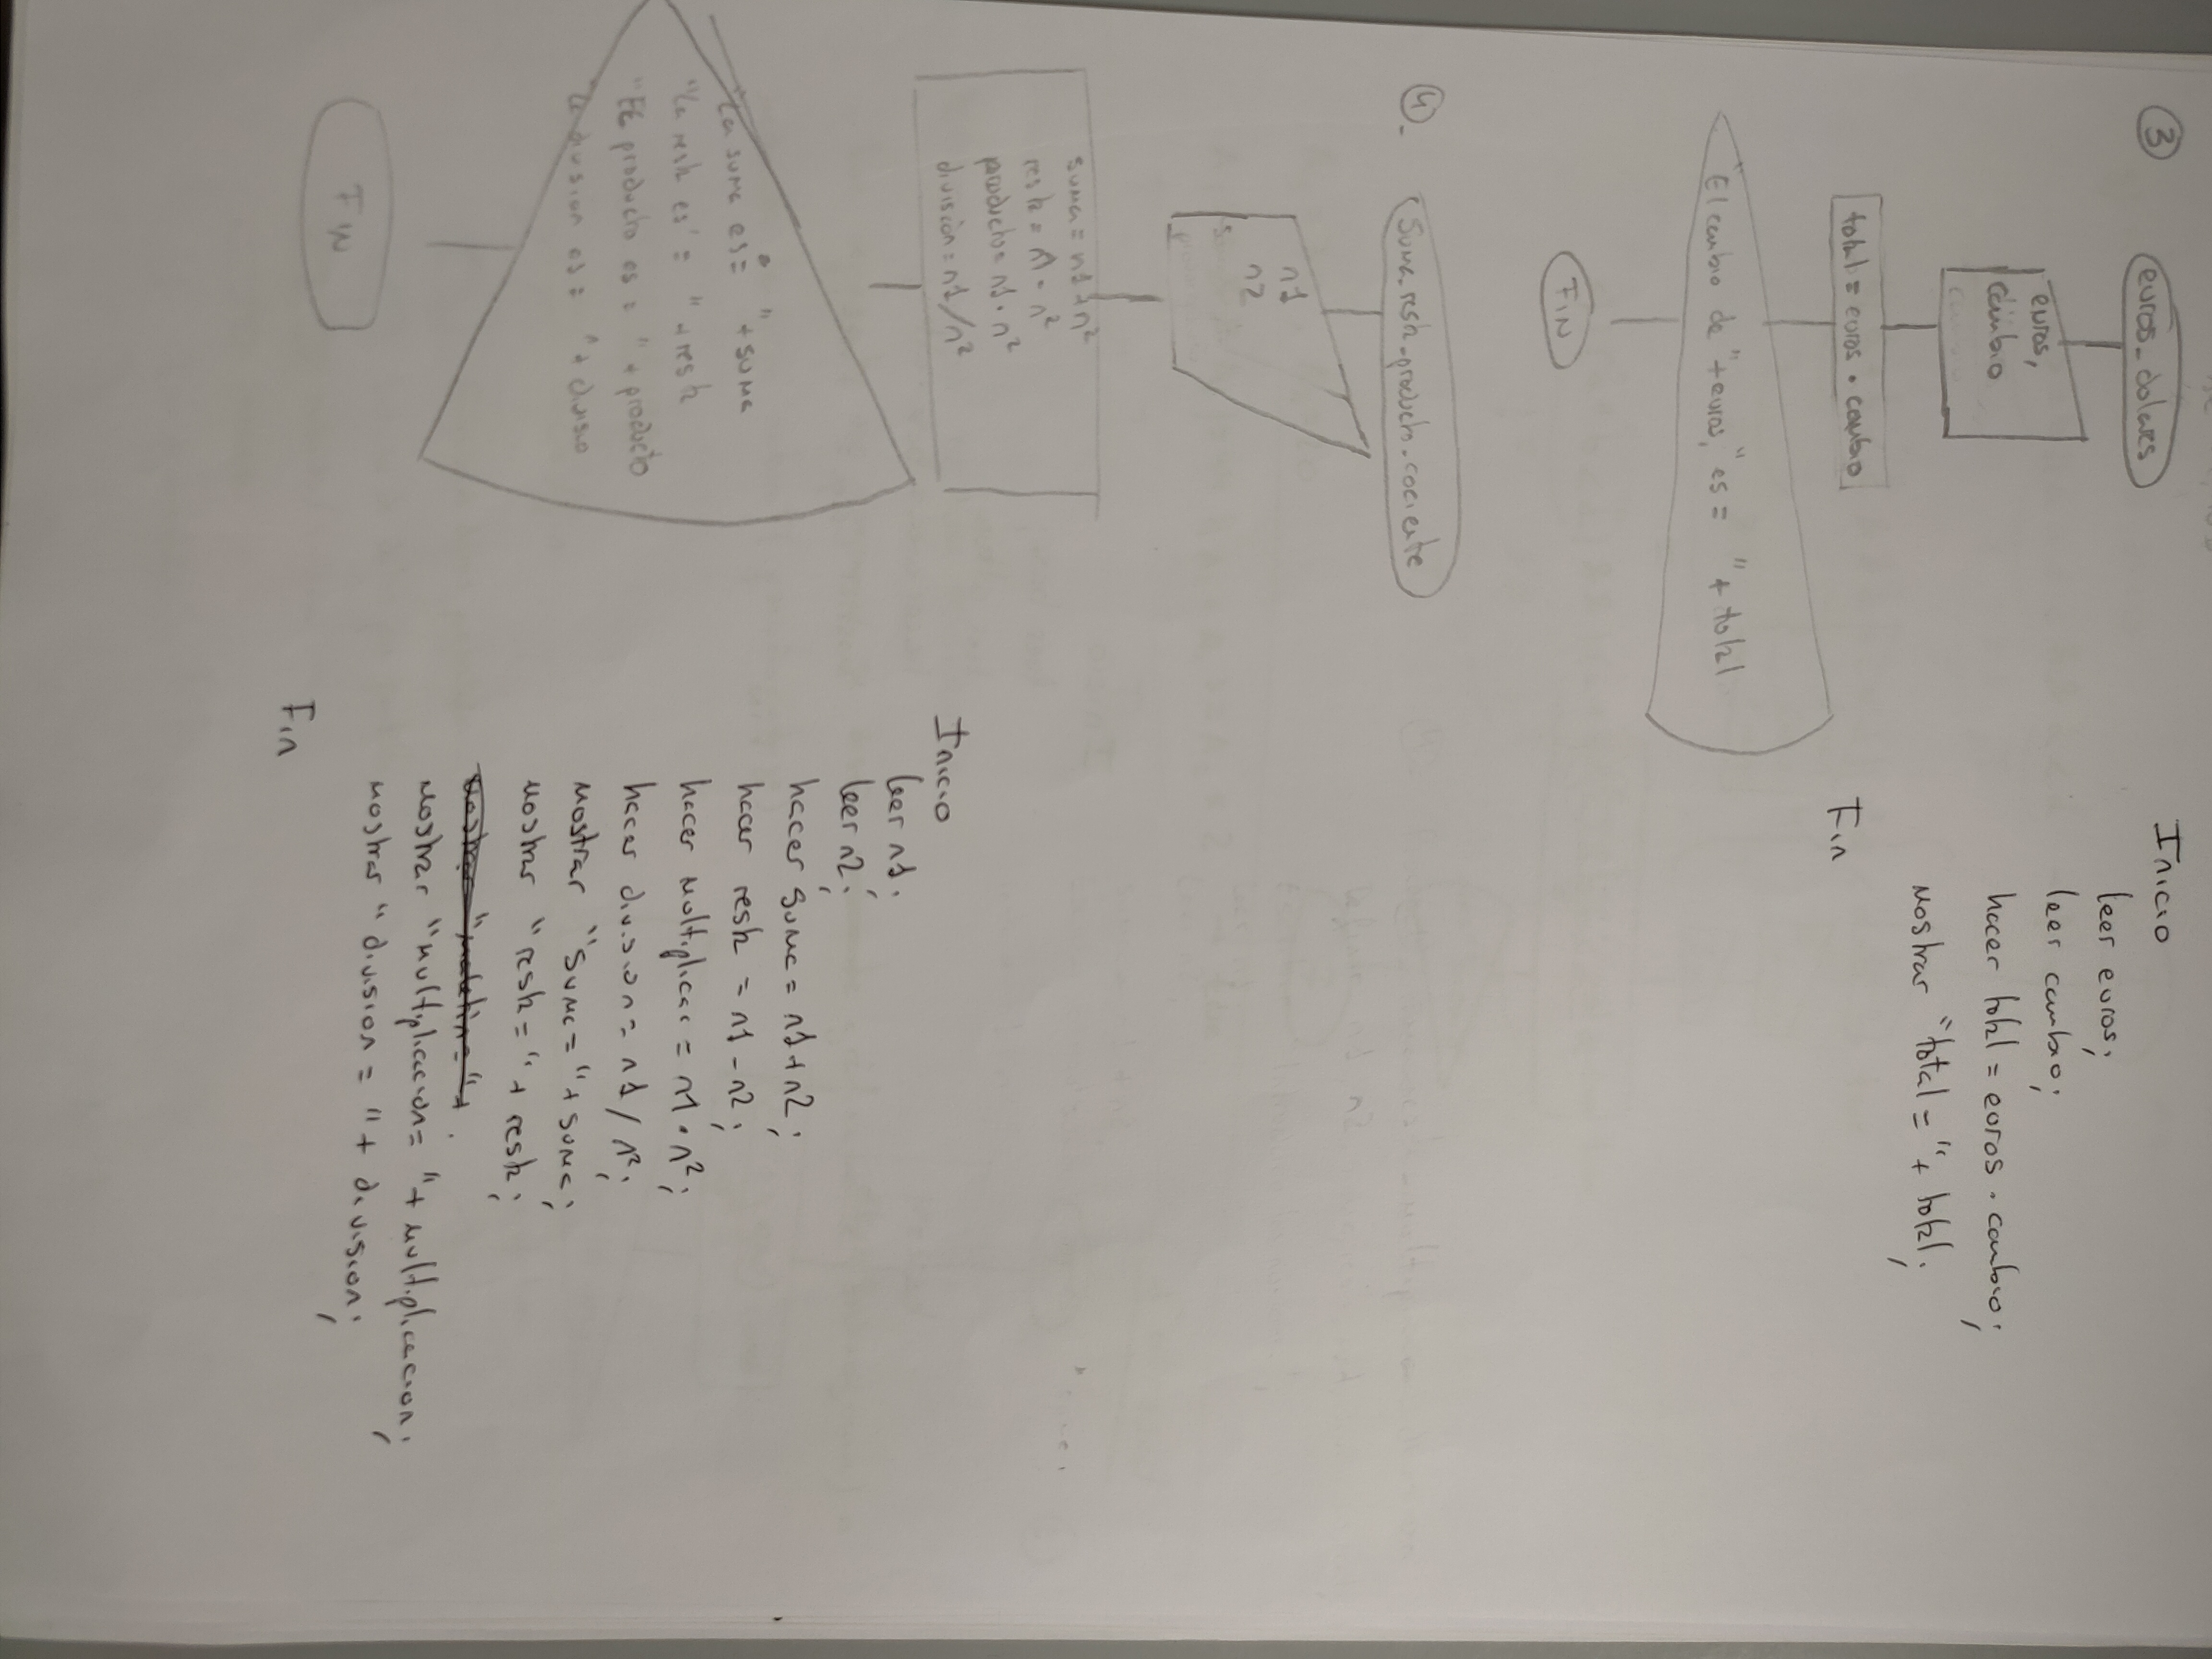 ③
euros_dolares
euros,
cambio
total = euros · cambio
"El cambio de "+euros," es = " + total
FIN
Inicio
leer euros;
leer cambio;
hacer total = euros · cambio;
mostrar "total = " + total;
Fin
④-
Suma_resta_producto_cociente
n1
n2
suma = n1 + n2
resta = n1 - n2
producto = n1 · n2
division = n1/n2
"La suma es = " + suma
"La resta es = " + resta
"El producto es = " + producto
"La division es = " + divisio
FIN
Inicio
leer n1;
leer n2;
hacer suma = n1 + n2;
hacer resta = n1 - n2;
hacer multiplicac = n1 · n2;
hacer division = n1 / n2;
mostrar "suma = " + suma;
mostrar "resta = " + resta;
mostrar "multiplicacion = " + multiplicacion;
mostrar "division = " + division;
Fin